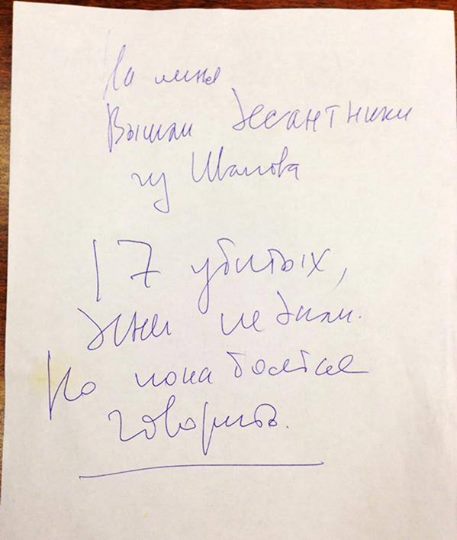 На меня
вышли десантники
из Иванова
17 убитых,
денег не дали.
Но пока боятся
говорить.